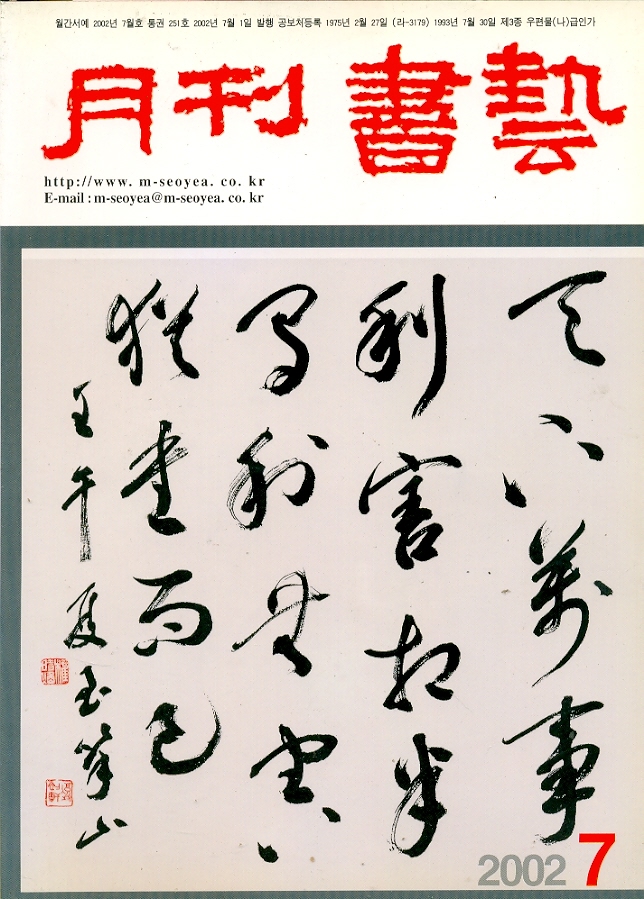 월간서예 2002년 7월호 통권 251호 2002년 7월 1일 발행 공보처등록 1975년 2월 27일 (라-3179) 1993년 7월 30일 제3종 우편물(나)급인가
月刊 書藝
http://www. m-seoyea. co. kr
E-mail : m-seoyea@m-seoyea. co. kr
天下萬事
利害相半
利無害
書而已
壬午夏玉峯山
2002 7